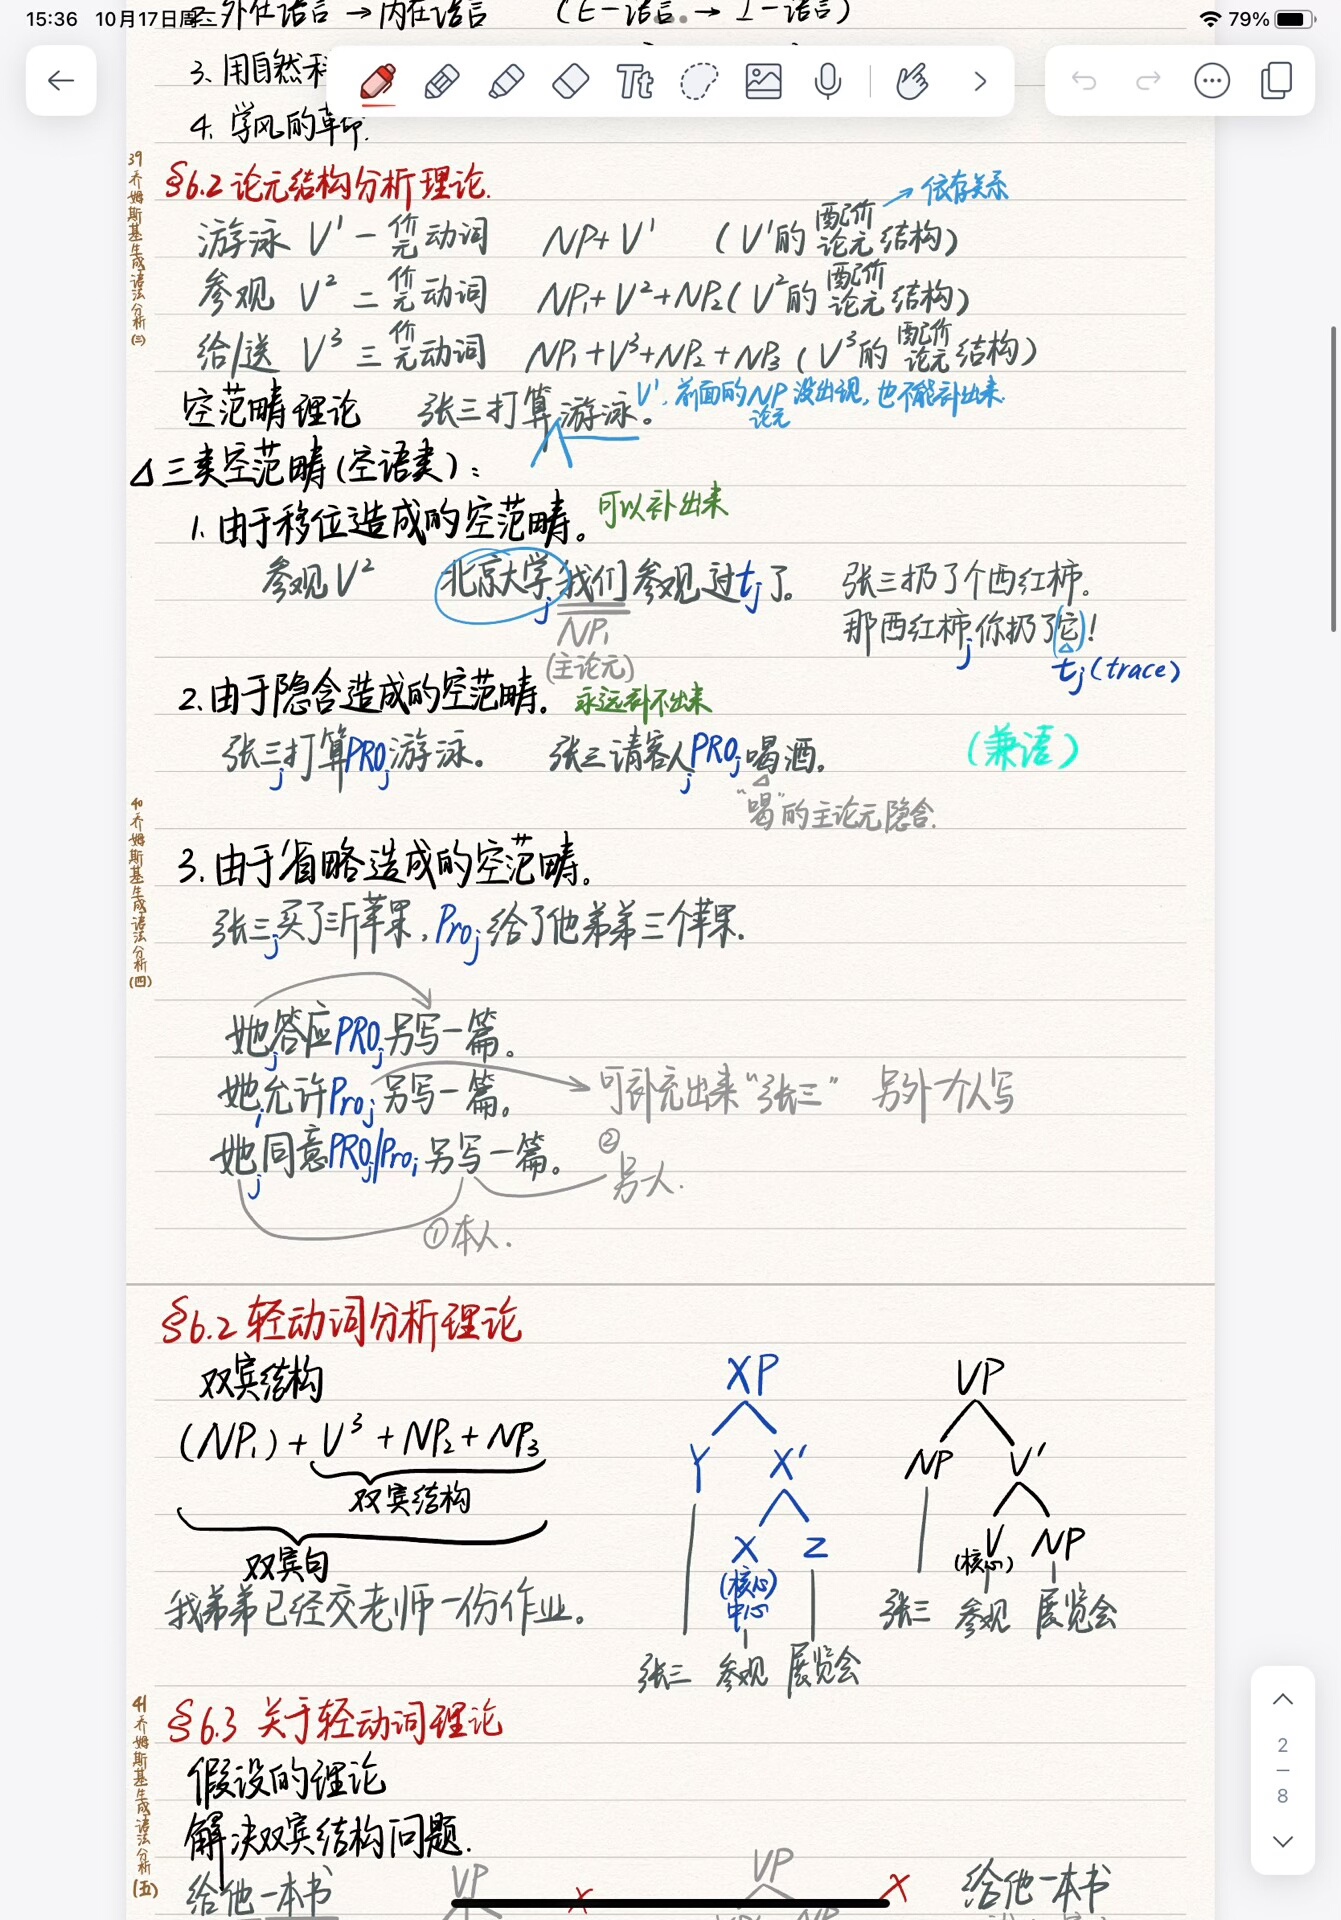 15:36 10月17日周二
79%
2. 外在语言→内在语言 (E-语言→I-语言)
3、用自然科
4、学风的革命.
39 乔姆斯基生成语法分析(三)
§6.2 论元结构分析理论.
→依存关系
游泳 V¹ 一价/元动词 NP+V¹ (V¹的配价/论元结构)
参观 V² 二价/元动词 NP₁+V²+NP₂(V²的配价/论元结构)
给/送 V³ 三价/元动词 NP₁+V³+NP₂+NP₃(V³的配价/论元结构)
空范畴理论 张三打算游泳。 V¹,前面的NP没出现,也不能补出来.
论元
△三类空范畴(空语类):
1.由于移位造成的空范畴。 可以补出来
参观V² 北京大学j我们参观过tj了。 张三扔了个西红柿。
NP₁
(主论元)
那西红柿j你扔了(它)!
tj(trace)
2.由于隐含造成的空范畴. 永远补不出来
张三j打算PROj游泳。 张三请客人jPROj喝酒. (兼语)
"喝"的主论元隐含.
40 乔姆斯基生成语法分析(四)
3.由于省略造成的空范畴.
张三j买了三斤苹果,Proj给了他弟弟三个苹果.
她j答应PROj另写一篇。
她i允许Proj另写一篇。 可补充出来"张三" 另外个人写
她j同意PROj/Proi另写一篇。 ②另一人.
①本人.
§6.2 轻动词分析理论
双宾结构
(NP₁)+V³+NP₂+NP₃
双宾结构
双宾句
我弟弟已经交老师一份作业。
XP
Y X'
X Z
(核心)
中心
张三 参观 展览会
VP
NP V'
V NP
(核心)
张三 参观 展览会
41 乔姆斯基生成语法分析(五)
§6.3 关于轻动词理论
假设的理论
解决双宾结构问题.
给他一本书 VP × VP × 给他一本书
2
8